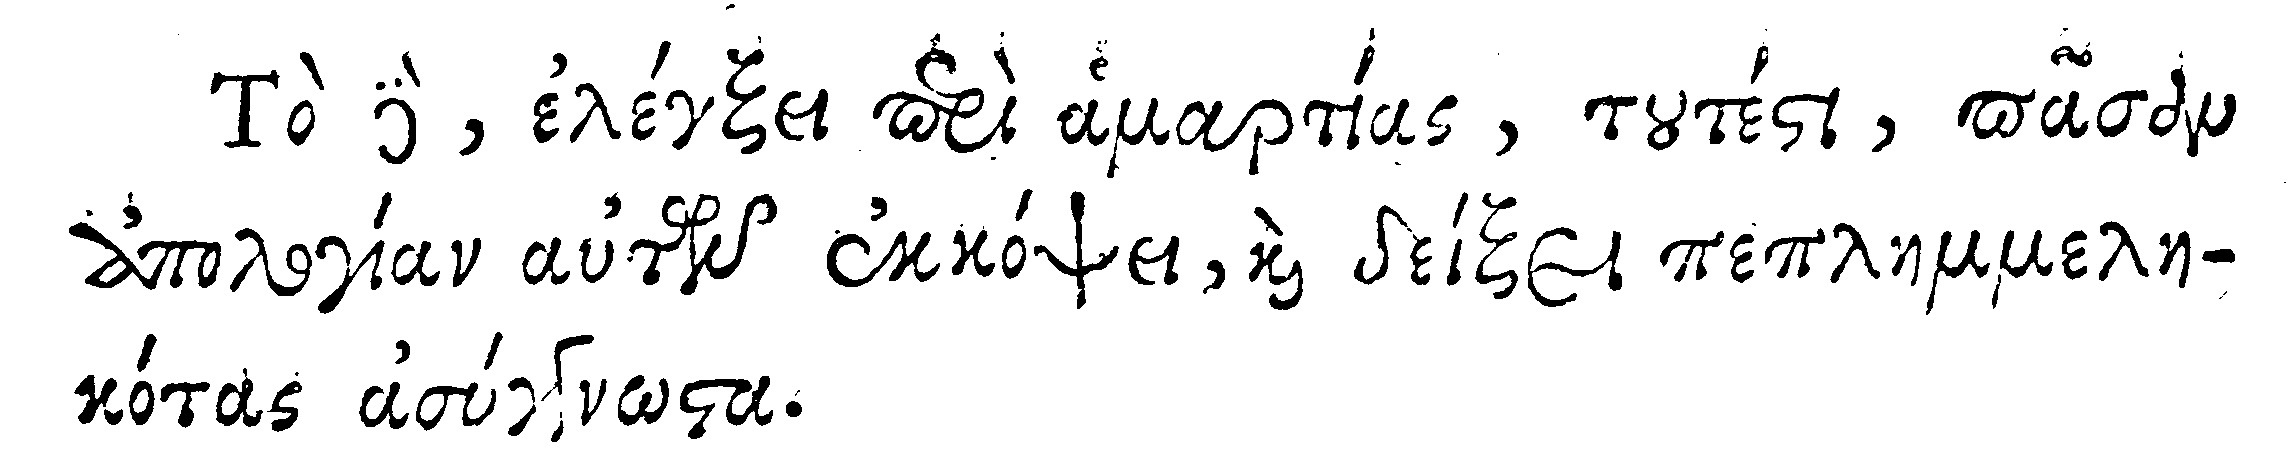 Τὸ δὲ, ἐλέγξει περὶ ἁμαρτίας, τουτέστι, πᾶσαν
ἀπολογίαν αὐτῶν ἐκκόψει, καὶ δείξει πεπλημμελη-
κότας ἀσύγγνωστα.